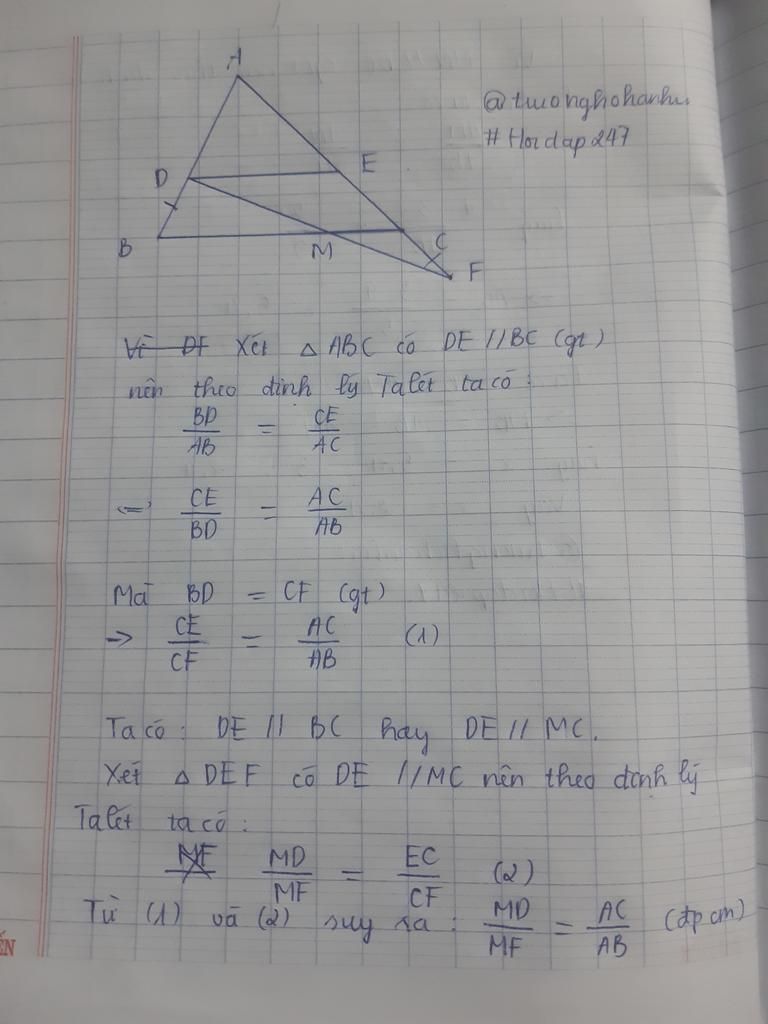 A
@tuonghohanhu
#Hoidap247
D
E
B
M
C
F
Vì DF Xét △ ABC có DE // BC (gt)
nên theo định lý Talét ta có:
BD/AB = CE/AC
CE/BD = AC/AB
Mà BD = CF (gt)
→ CE/CF = AC/AB (1)
Ta có: DE // BC hay DE // MC.
Xét △ DEF có DE // MC nên theo định lý
Talét ta có:
MF MD/MF = EC/CF (2)
Từ (1) và (2) suy ra: MD/MF = AC/AB (đpcm)